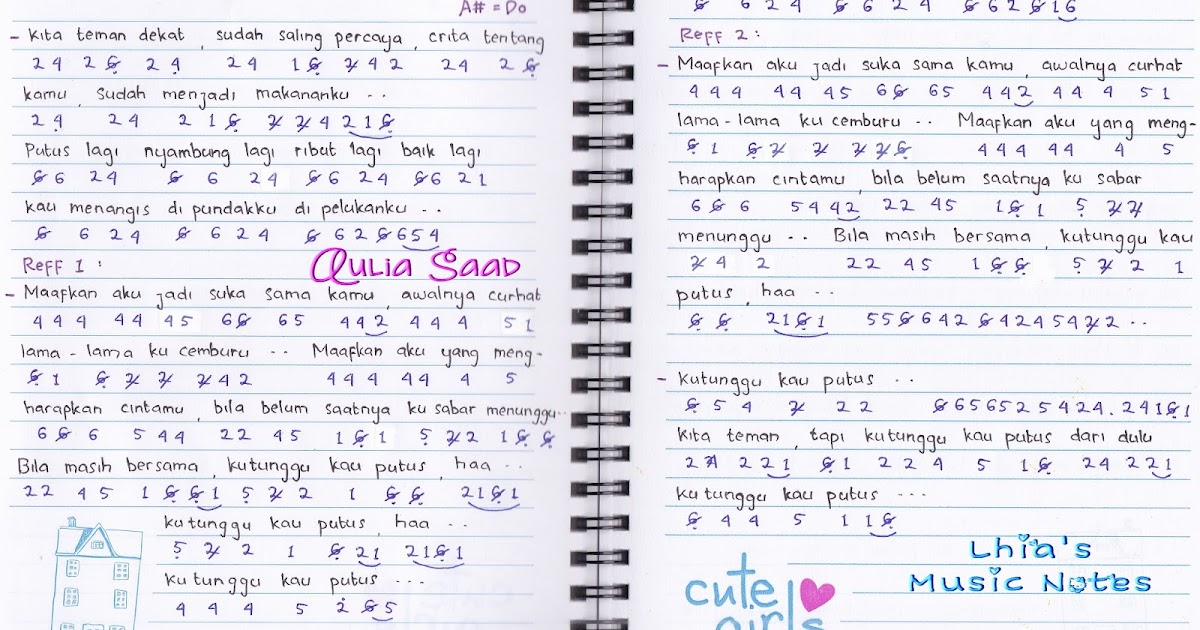 A# = Do
- Kita teman dekat, sudah saling percaya, crita tentang
2 4 2 6 2 4 2 4 1 6 7 4 2 2 4 2 6
kamu, sudah menjadi makananku ..
2 4 2 4 2 1 6 7 7 4 2 1 6
Putus lagi nyambung lagi ribut lagi baik lagi
6 6 2 4 6 6 2 4 6 6 2 4 6 6 2 1
kau menangis di pundakku di pelukanku ..
6 6 2 4 6 6 2 4 6 6 2 6 6 5 4
Reff 1 :
Aulia Saad
- Maafkan aku jadi suka sama kamu, awalnya curhat
4 4 4 4 4 4 5 6 6 6 5 4 4 2 4 4 4 5 1
lama-lama ku cemburu .. Maafkan aku yang meng-
6 1 6 7 7 7 4 2 4 4 4 4 4 4 5
harapkan cintamu, bila belum saatnya ku sabar menunggu ..
6 6 6 5 4 4 2 2 4 5 1 6 1 5 7 2 1 6 6
Bila masih bersama, kutunggu kau putus, haa ..
2 2 4 5 1 6 6 1 5 7 2 1 6 6 2 1 6 1
kutunggu kau putus, haa ..
5 7 2 1 6 2 1 2 1 6 1
kutunggu kau putus ...
4 4 4 5 2 6 5
6 6 2 4 6 6 2 4 6 6 2 6 6 1 6
Reff 2 :
- Maafkan aku jadi suka sama kamu, awalnya curhat
4 4 4 4 4 4 5 6 6 6 5 4 4 2 4 4 4 5 1
lama-lama ku cemburu .. Maafkan aku yang meng-
6 1 6 7 7 7 7 6 4 4 4 4 4 4 5
harapkan cintamu, bila belum saatnya ku sabar
6 6 6 5 4 4 2 2 2 4 5 1 6 1 5 7 7
menunggu .. Bila masih bersama, kutunggu kau
7 4 2 2 2 4 5 1 6 6 5 7 2 1
putus, haa ..
6 6 2 1 6 1 5 5 6 6 4 2 6 4 2 4 5 4 7 2 ..
- Kutunggu kau putus ..
6 5 4 7 2 2 6 6 5 6 5 2 5 4 2 4 . 2 4 1 6 1
Kita teman, tapi kutunggu kau putus dari dulu
2 4 2 2 1 6 1 2 2 4 5 1 6 2 4 2 2 1
kutunggu kau putus ...
6 4 4 5 1 1 6
Lhia's
Music Notes
cute
girls